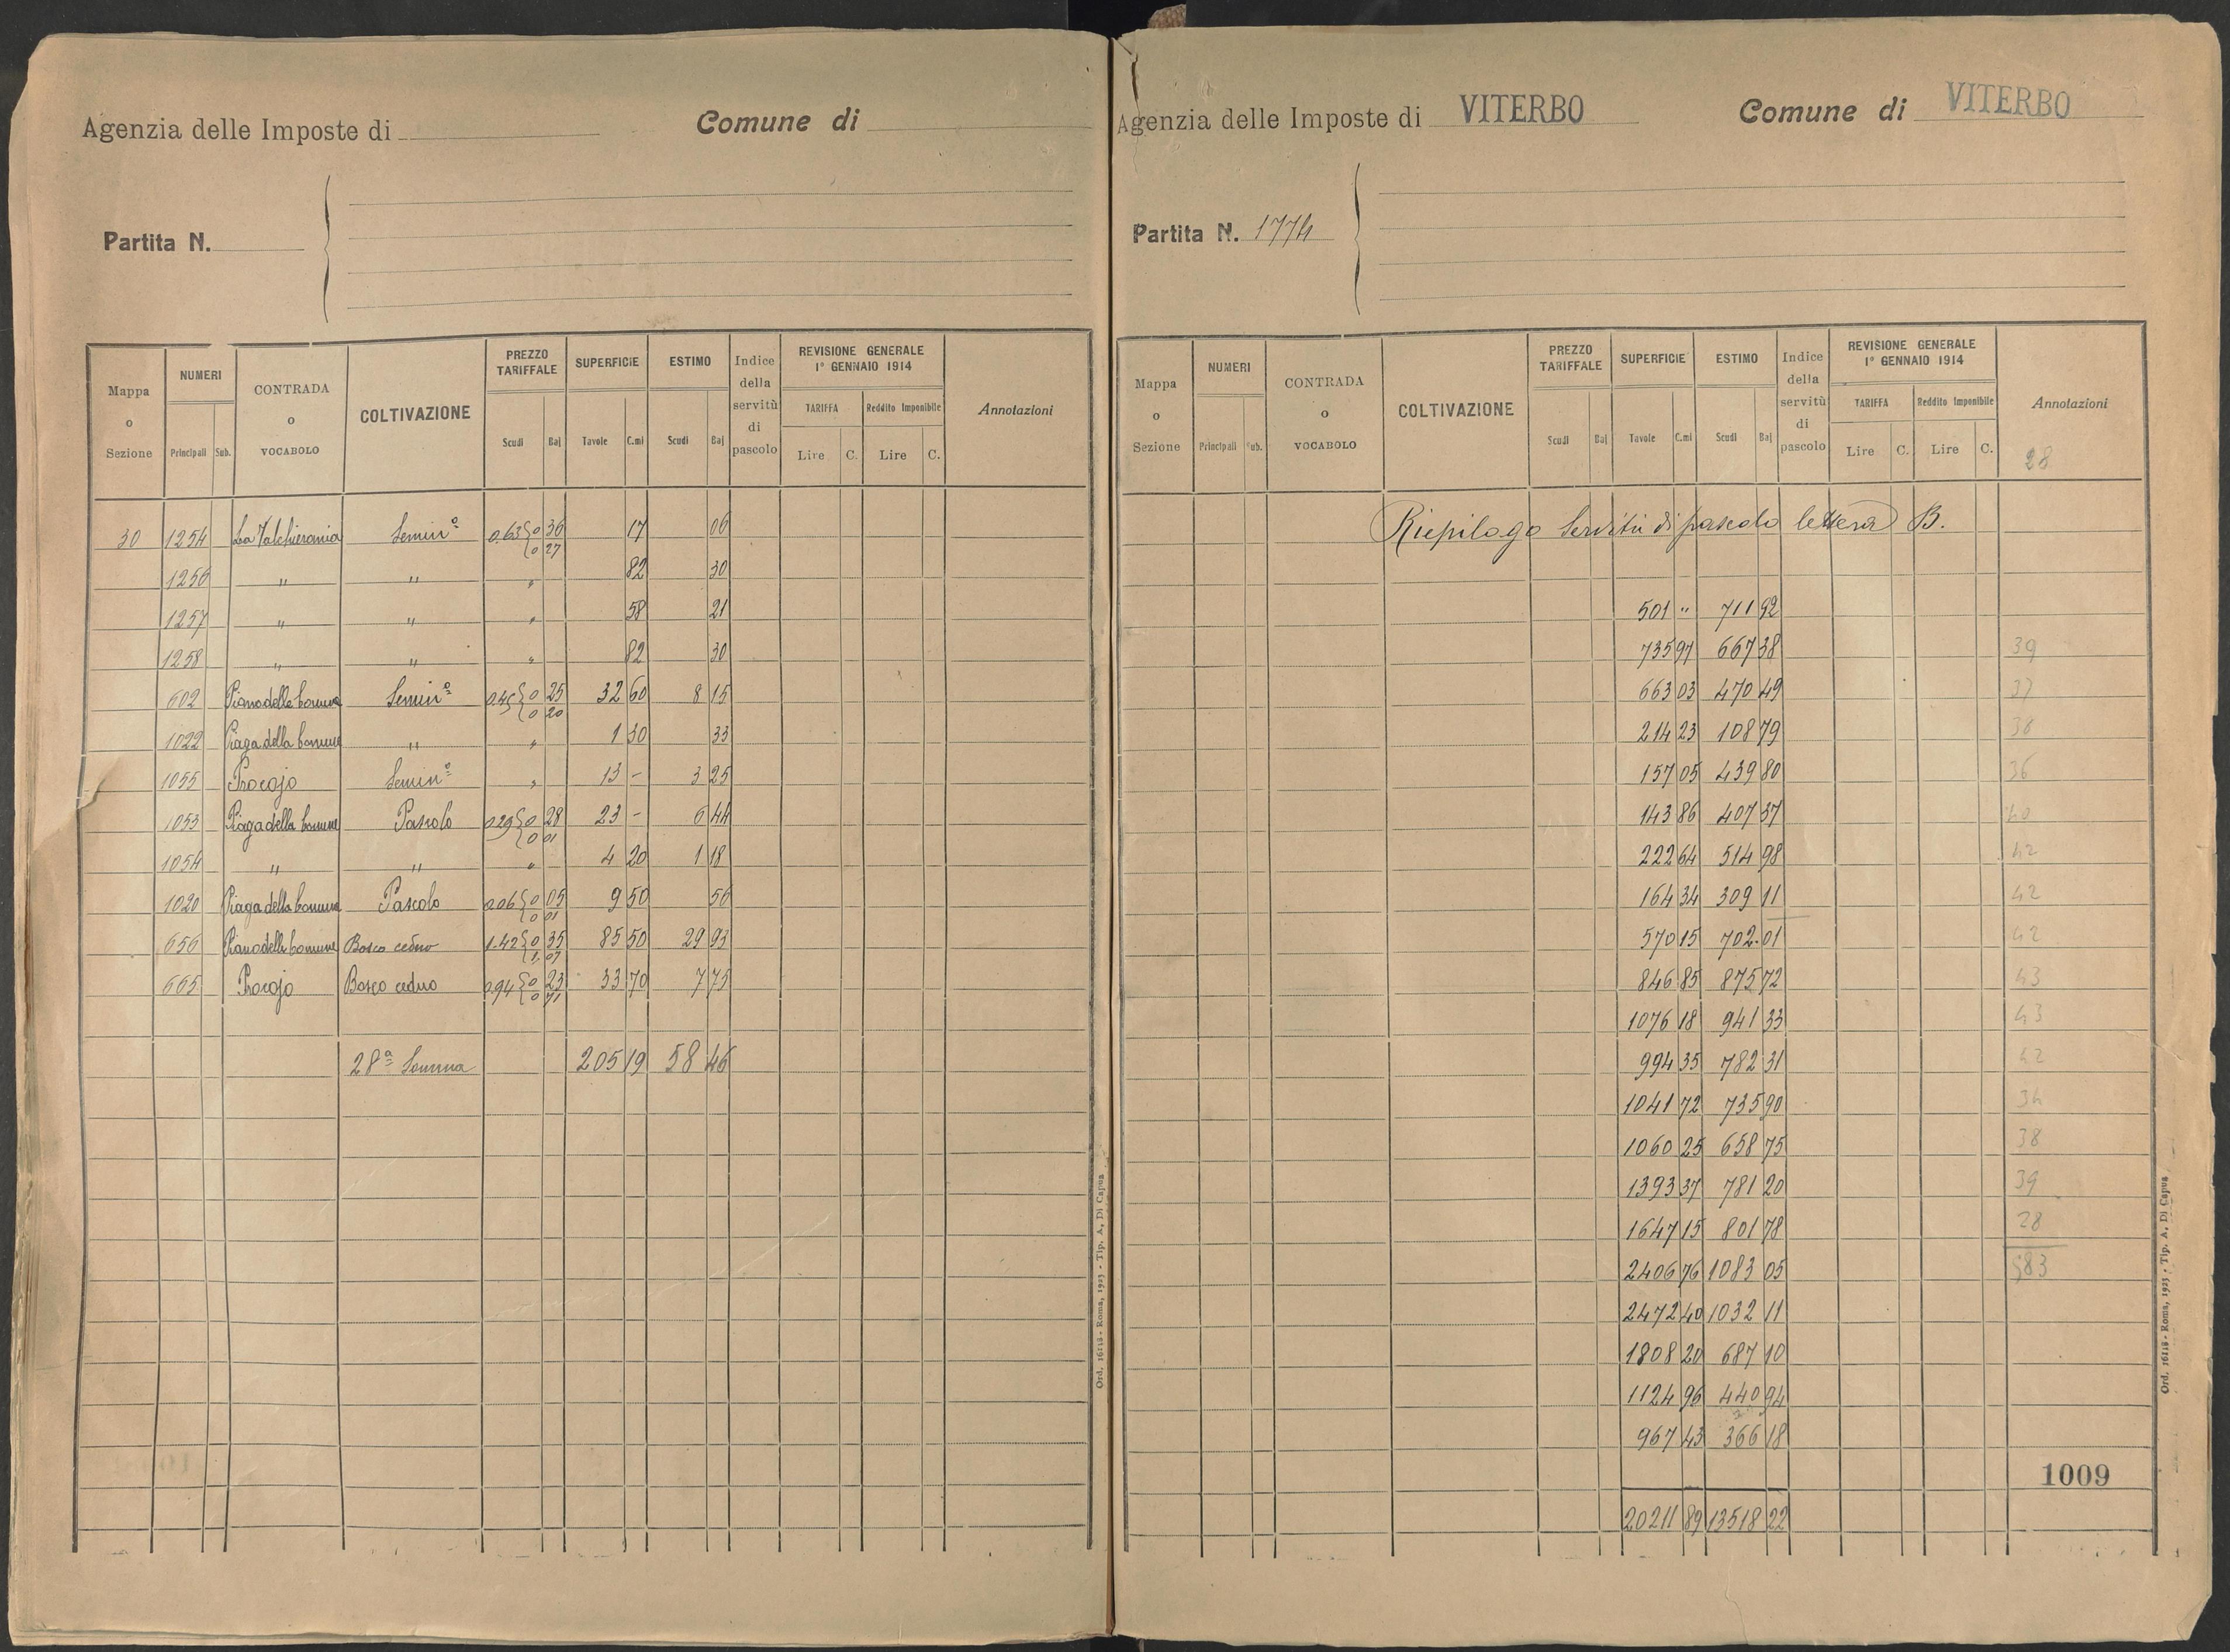 Agenzia delle Imposte di
Comune di
Partita N.
Mappa o Sezione
NUMERI
Principali Sub.
CONTRADA o VOCABOLO
COLTIVAZIONE
PREZZO TARIFFALE
Scudi Baj
SUPERFICIE
Tavole C.mi
ESTIMO
Scudi Baj
Indice della servitù di pascolo
REVISIONE GENERALE 1° GENNAIO 1914
TARIFFA
Lire C.
Reddito Imponibile
Lire C.
Annotazioni
30 1254 Semin° 0.63 { 0 36 17 06
0 27
1256 " " " 82 30
1257 " " " 58 21
1258 " " " 82 30
602 Piano della Comune Semin° 0.45 { 0 25 32 60 8 15
0 20
1022 Piaga della Comune " " 1 30 33
1055 Procojo Semin° " 13 - 3 25
1053 Piaga della Comune Pascolo 0.29 { 0 28 23 - 6 44
0 01
1054 " " " 4 20 1 18
1020 Piaga della Comune Pascolo 0.06 { 0 05 9 50 56
0 01
656 Piano della Comune Bosco ceduo 1.42 { 0 35 85 50 29 93
1,07
665 Procojo Bosco ceduo 0.94 { 0 23 33 70 7 75
0 71
28ª Somma 205 19 58 46
Ord. 16118 - Roma, 1923 - Tip. A. Di Capua
Agenzia delle Imposte di VITERBO
Comune di VITERBO
Partita N. 1774
Mappa o Sezione
NUMERI
Principali Sub.
CONTRADA o VOCABOLO
COLTIVAZIONE
PREZZO TARIFFALE
Scudi Baj
SUPERFICIE
Tavole C.mi
ESTIMO
Scudi Baj
Indice della servitù di pascolo
REVISIONE GENERALE 1° GENNAIO 1914
TARIFFA
Lire C.
Reddito Imponibile
Lire C.
Annotazioni
28
Riepilogo Servitù di pascolo lettera B.
501 " 711 92
735 97 667 38 39
663 03 470 49 37
214 23 108 79 38
157 05 439 80 36
143 86 407 37 40
222 64 514 98 42
164 34 309 11 42
570 15 702.01 42
846 85 875 72 43
1076 18 941 33 43
994 35 782 31 42
1041 72 735 90 34
1060 25 658 75 38
1393 37 781 20 39
1647 15 801 78 28
2406 76 1083 05 583
2472 40 1032 11
1808 20 687 10
1124 96 440 94
967 43 366 18
1009
20211 89 13518 22
Ord. 16118 - Roma, 1923 - Tip. A. Di Capua